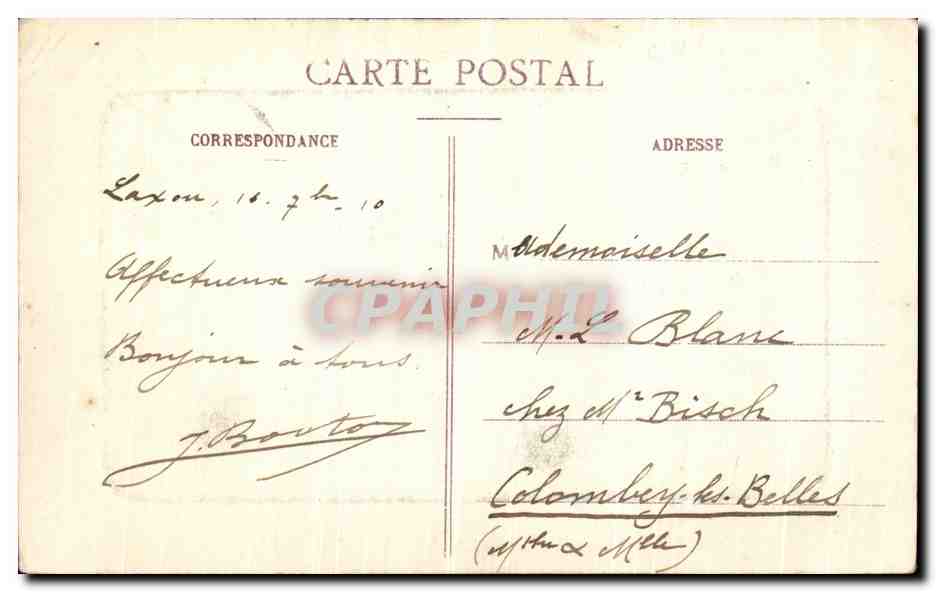 CARTE POSTAL
CORRESPONDANCE
Laxou, 16. 7bre 10
Affectueux souvenir
Bonjour à tous.
ADRESSE
Mademoiselle
M. L. Blanc
chez Mr Bisch
Colombey-les-Belles
(Mthe & Mlle)
CPAPHIL